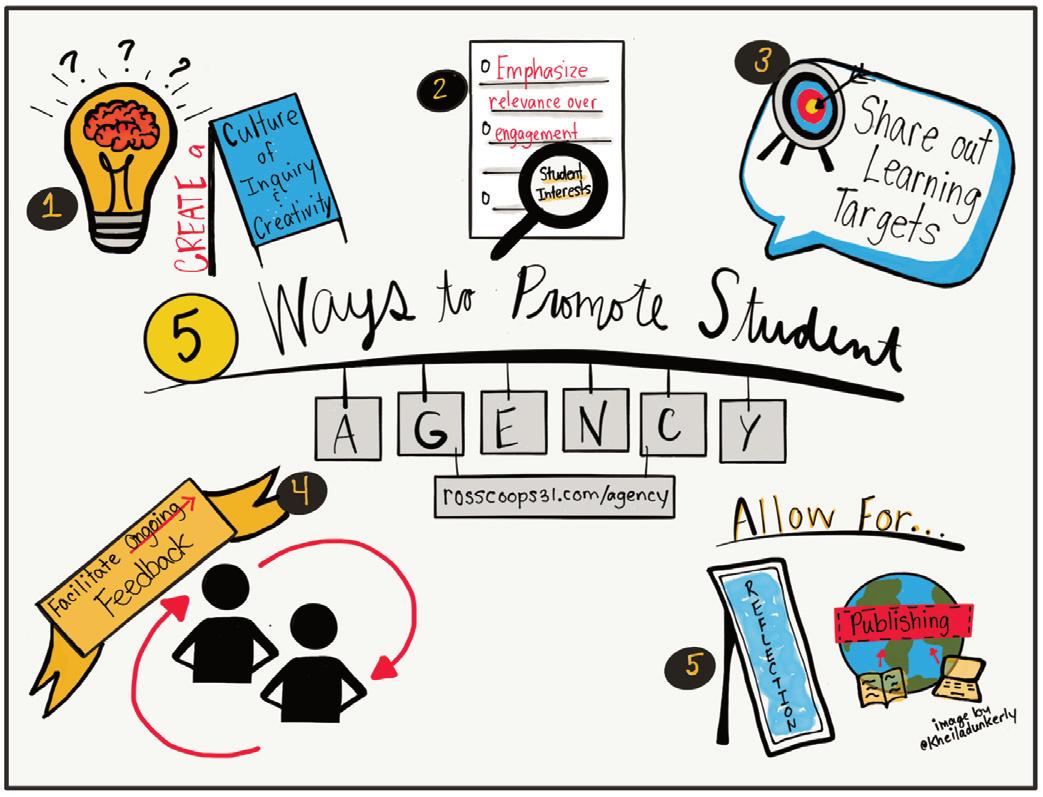 ? ? ?
1
CREATE a
Culture
of
Inquiry
&
Creativity
2
Emphasize
relevance over
engagement
Student
Interests
3
Share out
Learning
Targets
5 Ways to Promote Student
AGENCY
rosscoops31.com/agency
4
Facilitate Ongoing
Feedback
Allow For...
5
REFLECTION
Publishing
image by
@Kheiladunkerly